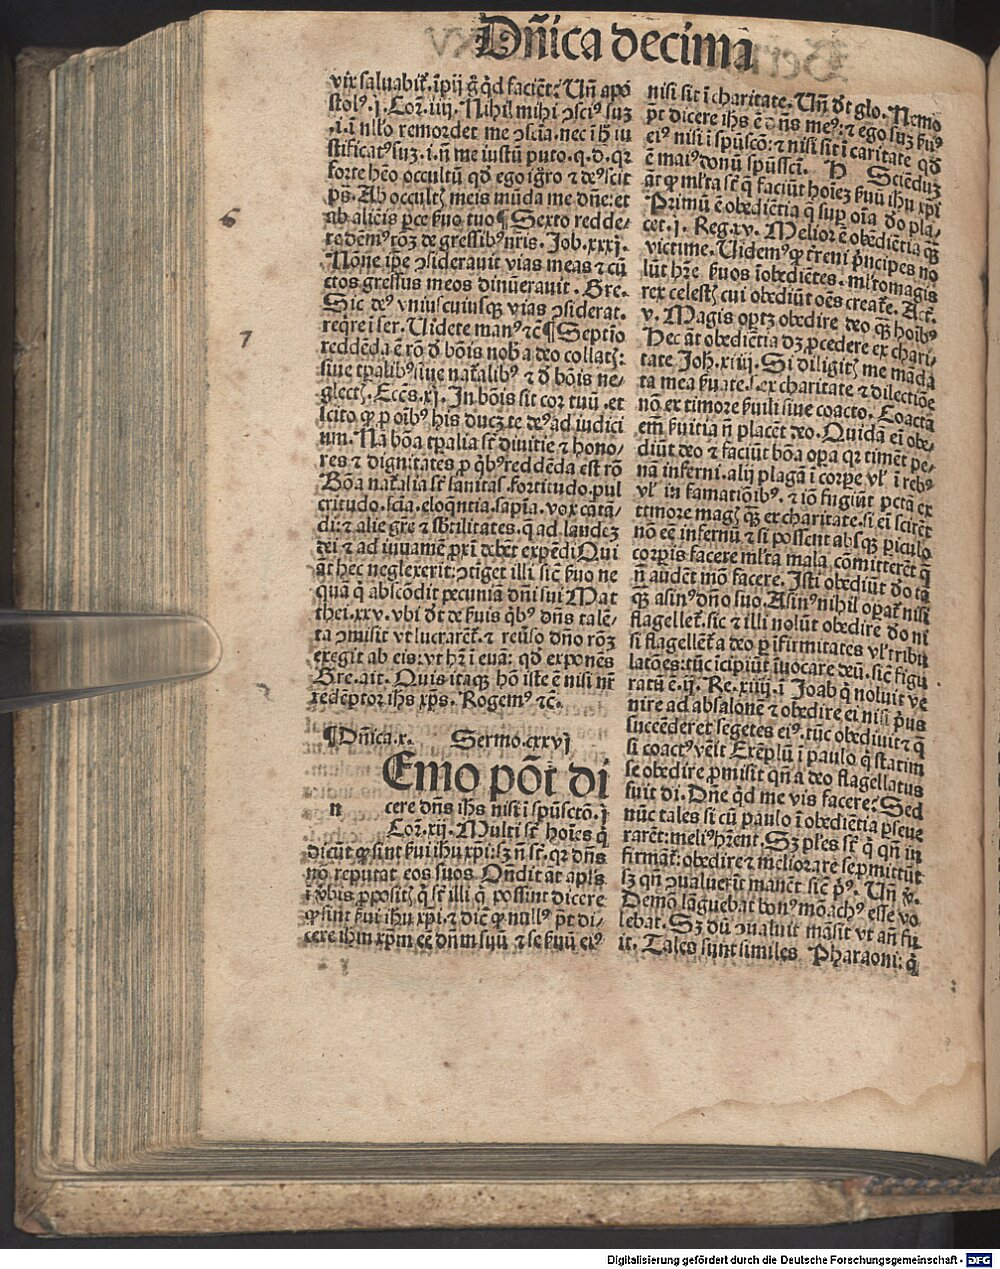 Dñica decima
vix saluabit᷑. īpij g̊ q̇d faciēt: Uñ apo
stolꝰ .j. Cor̄. iiij. Nihil mihi ↄsciꝰ suꝫ
.i. ī nllo remordet me ↄsciā. nec ī h̄ iu
stificatꝰ suꝫ .i. ñ me iustū puto. q.d. qꝛ
forte hēo occultū qd̄ ego igr̄o ⁊ deꝰ scit
ps̄. Ab occultꝭ meis mūda me dn̄e: et
ab alienis ꝑce ẜuo tuo ¶ Sexto redde⸗
re dēmꝰ rōꝫ de gressibꝰ nr̄is. Job. xxxj.
Nōne ip̄e ↄsiderauit vias meas ⁊ cū
ctos gressus meos dinũerauit. Gre.
Sic deꝰ vniuscuiusqꝫ vias ↄsiderat.
reqͥre ī ser. Uidete manꝰ ⁊c̄ ¶ Septīo
reddēda ē rō d̄ bōis nob̄ a deo collatꝭ:
siue tꝑalibꝰ siue nat᷑alibꝰ ⁊ d̄ bōis ne⸗
glectꝭ. Eccs̄. xj. In bōis sit cor tuū. et
scito ꝙ ꝓ oībꝰ his ducꝫ te deꝰ ad iudici
um. Nā bōa tꝑalia st̄ diuitie ⁊ hono⸗
res ⁊ dignitates ꝓ qͥbꝰ reddēda est rō
Bōa nat᷑alia st̄ sanitas. fortitudo. pul
critudo. scīa. eloqn̄tia. sapīa. vox cāta⸗
di: ⁊ alie gr̄e ⁊ sb̄tilitates. q̄ ad laudeꝫ
dei ⁊ ad iuuamē ꝓxī debet expēdi Qui
āt hec neglexerit: ↄtīget illi sic̄ ẜuo ne
quā q̇ abscōdit pecuniā dn̄i sui Mat
thei. xxv. vbi dr̄ de ẜuis qͥbꝰ dn̄s talē⸗
ta ↄmisit vt lucrarēt᷑. ⁊ reūso dn̄o rōꝫ
exegit ab eis: vt hr̄ ī euā: qd̄ exponēs
Gre. ait. Quis itaqꝫ hō iste ē nisi nr̄
redēptor ihs̄ xp̄s. Rogemꝰ ⁊c̄.
¶ Dñica. x. Sermo. cxxvj
Emo pōt di
n cere dn̄s ihs̄ nisi ī spūsctō. j
Cor̄. xij. Multi st̄ hoīes q̇
dicūt ꝙ sint ẜui ihu xp̄i: sꝫ ñ st̄. qꝛ dn̄s
nō reputat eos suos Oñdit āt apl̄s
ī v̄bis ꝓpositꝭ q̇ st̄ illi q̇ possint dicere
ꝙ sint ẜui ihu xp̄i. ⁊ dic̄ ꝙ nullꝰ pōt di⸗
cere ihm xp̄m eē dn̄m suū ⁊ se ẜuū eiꝰ
nisi sit ī charitate. Uñ dr̄t glo. Nemo
pōt dicere ihs̄ ē dn̄s meꝰ: ⁊ ego suꝫ ẜuꝰ
eiꝰ nisi ī spūscō: ⁊ nisi sit ī caritate qd̄
ē maiꝰ donū spūssci. Sciēduꝫ
āt ꝙ ml̄ta st̄ q̄ faciūt hoīeꝫ ẜuū ihu xp̄i
Primū ē obediētia q̄ suꝑ oīa do pla⸗
cet. j. Reg. xv. Melior ē obediētia q̄ꝫ
victime. Uidemꝰ ꝙ t᷑reni pͥncipes no
lūt hr̄e ẜuos īobediētes. ml̄tomagis
rex celestꝭ cui obediūt oēs creat᷑e. Act᷑.
v. Magis oꝑtꝫ obedire deo q̄ꝫ hoībꝰ
Hec āt obediētia dꝫ ꝓcedere ex chari⸗
tate Joh. xiiij. Si diligitꝭ me māda
ta mea ẜuate .s. ex charitate ⁊ dilectiōe
nō ex timore ẜuili siue coacto. Coacta
em̄ ẜuitia ñ placēt deo. Quidā ei obe⸗
diūt deo ⁊ faciūt bōa oꝑa qꝛ timēt pe⸗
nā inferni. alij plagā ī corꝑe vl̓ ī rebꝰ
vl̓ in famatiōibꝰ. ⁊ iō fugiūt pctā ex
timore magꝭ q̄ꝫ ex charitate. si ei scirēt
nō eē infernū ⁊ si possent absqꝫ ꝑiculo
corꝑis facere ml̄ta mala cōmitterēt q̄
ñ audēt mō facere. Isti obediūt do tā
q̄ꝫ asinꝰ dn̄o suo. Asinꝰ nihil oꝑat᷑ nisi
flagellet᷑. sic ⁊ illi nolūt obedire do ni
si flagellēt᷑ a deo ꝑ īfirmitates vl̓ tribu
latōes: tūc īcipiūt īuocare deū. sic̄ figu
ratū ē. ij. Re. xiiij. ī Joab q̇ noluit ve
nire ad absalonē ⁊ obedire ei nisi pͥus
succēderet segetes eiꝰ. tūc obediuit ⁊ q̄
si coactꝰ vēit Exēplū ī paulo q̇ statim
se obedire ꝓmisit qñ a deo flagellatus
fuit di. Dn̄e q̇d me vis facere: Sed
nūc tales si cū paulo ī obediētia ꝑseue
rarēt: meliꝰ hr̄ent. Sꝫ ples st̄ q̇ qñ in
firmāt᷑: obedire ⁊ meliorare se ꝓmittūt
sꝫ qñ ↄualuerīt manēt sic̄ pͥꝰ. Uñ v̄.
Demō lāguebat bonꝰ mōachꝰ esse vo
lebat. Sꝫ dū ↄualuit māsit vt añ fu
it. Tales sunt similes Pharaoni: q̇
6
7
Digitalisierung gefördert durch die Deutsche Forschungsgemeinschaft - DFG